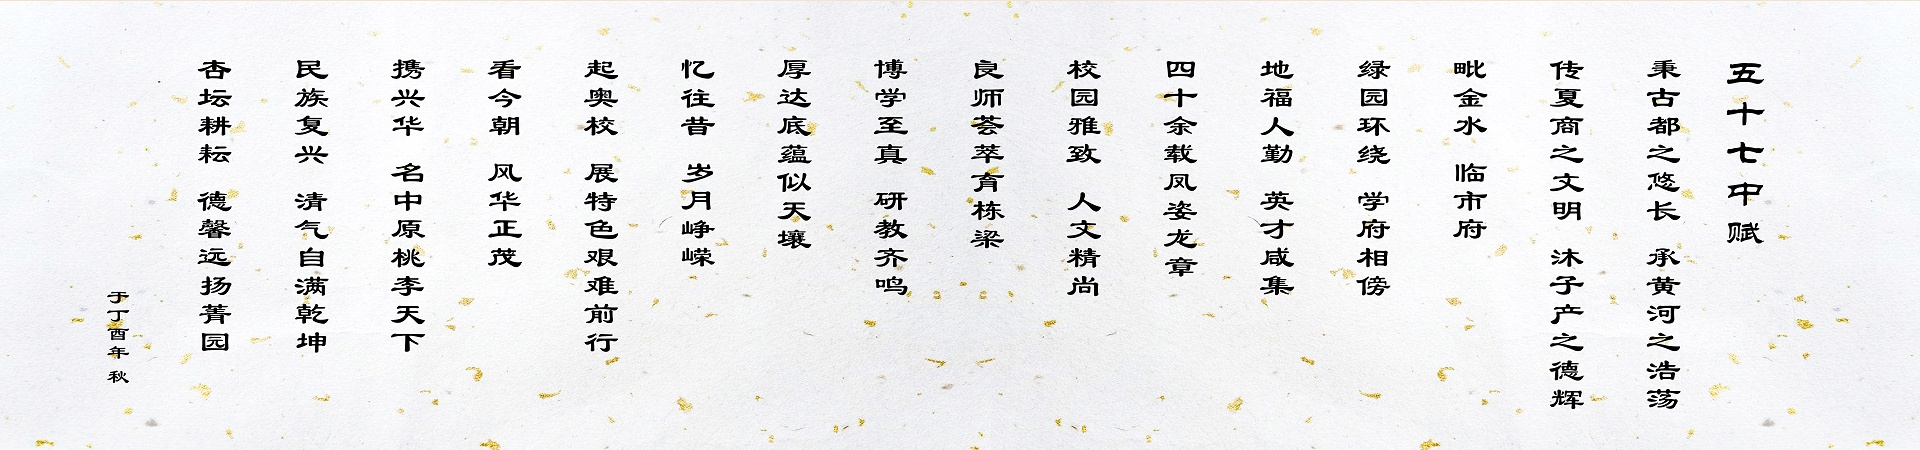 五十七中赋
秉古都之悠长 承黄河之浩荡
传夏商之文明 沐子产之德辉
毗金水 临市府
绿园环绕 学府相傍
地福人勤 英才咸集
四十余载凤姿龙章
校园雅致 人文精尚
良师荟萃育栋梁
博学至真 研教齐鸣
厚达底蕴似天壤
忆往昔 岁月峥嵘
起奥校 展特色艰难前行
看今朝 风华正茂
携兴华 名中原桃李天下
民族复兴 清气自满乾坤
杏坛耕耘 德馨远扬菁园
于丁酉年 秋